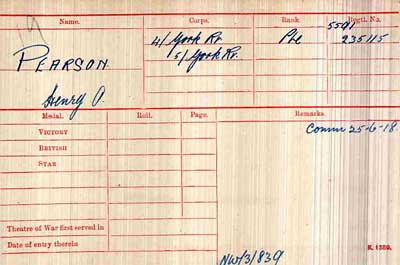 Name. Corps. Rank. Regtl. No.
5591
PEARSON 4/ York Rr. Pte 235115
5/ York Rr.
Henry O.
Medal. Roll. Page. Remarks.
VICTORY Comm 25-6-18.
BRITISH
STAR
Theatre of War first served in
Date of entry therein
K. 1380.
NW/3/839